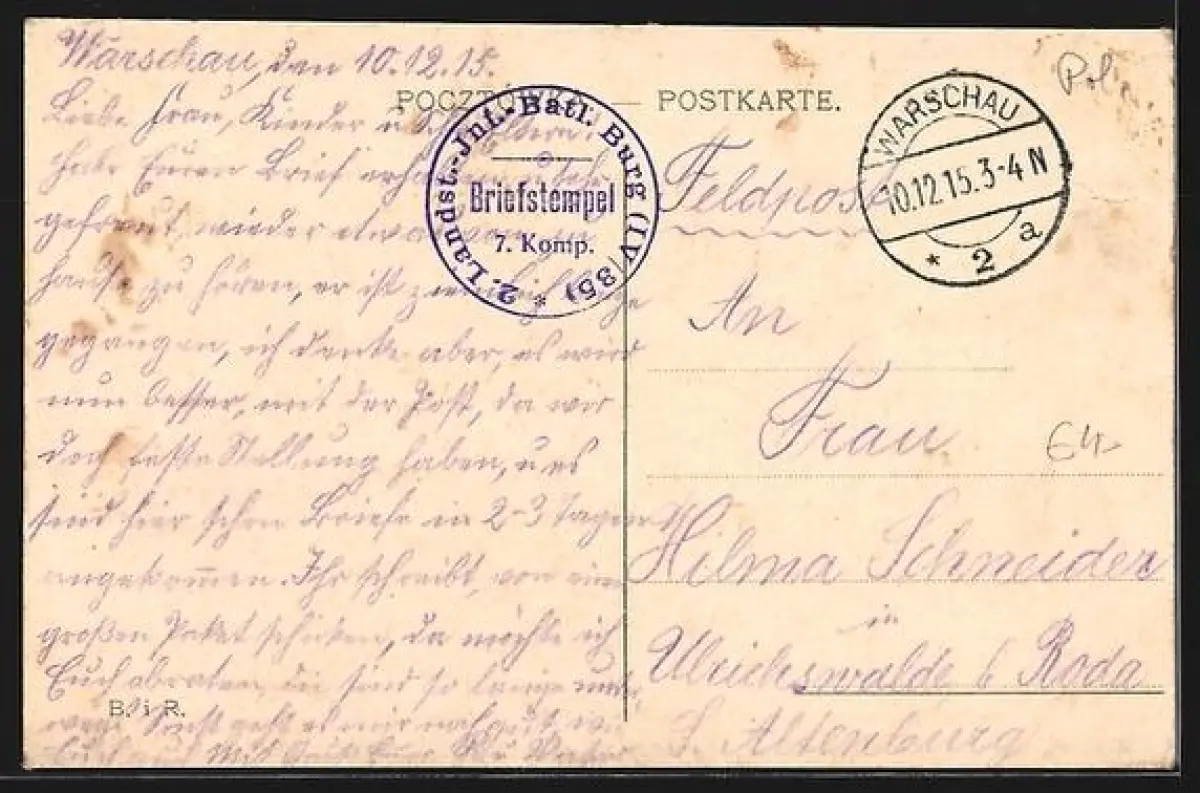 Warschau, den 10.12.15.
Liebe Frau, Kinder u. Schw.eltern.
habe Euren Brief erhalten u. sehr
gefreut, wieder etwas von zu
hause zu hören, er ist ziemlich lange
gegangen, ich denke aber, es wird
nun besser, mit der Post, da wir
doch feste Stellung haben, u es
sind hier schon Briefe in 2-3 Tagen
angekommen. Ihr schreibt, von einem
großen Paket schicken, da möchte ich
Euch abraten, die sind so lange unter-
wegs. Sonst geht es mir noch gut, wie
Euch auch Mit Gruß Euer Vater
POCZTÓWKA — POSTKARTE.
2. Landst.-Inf.-Batl. Burg (IV/35) *
Briefstempel
7. Komp.
WARSCHAU
10.12.15.3-4 N
* 2 a
Feldpost
An
Frau
Hilma Schneider
in
Ulrichswalde b Roda
S. Altenburg
B. i R.